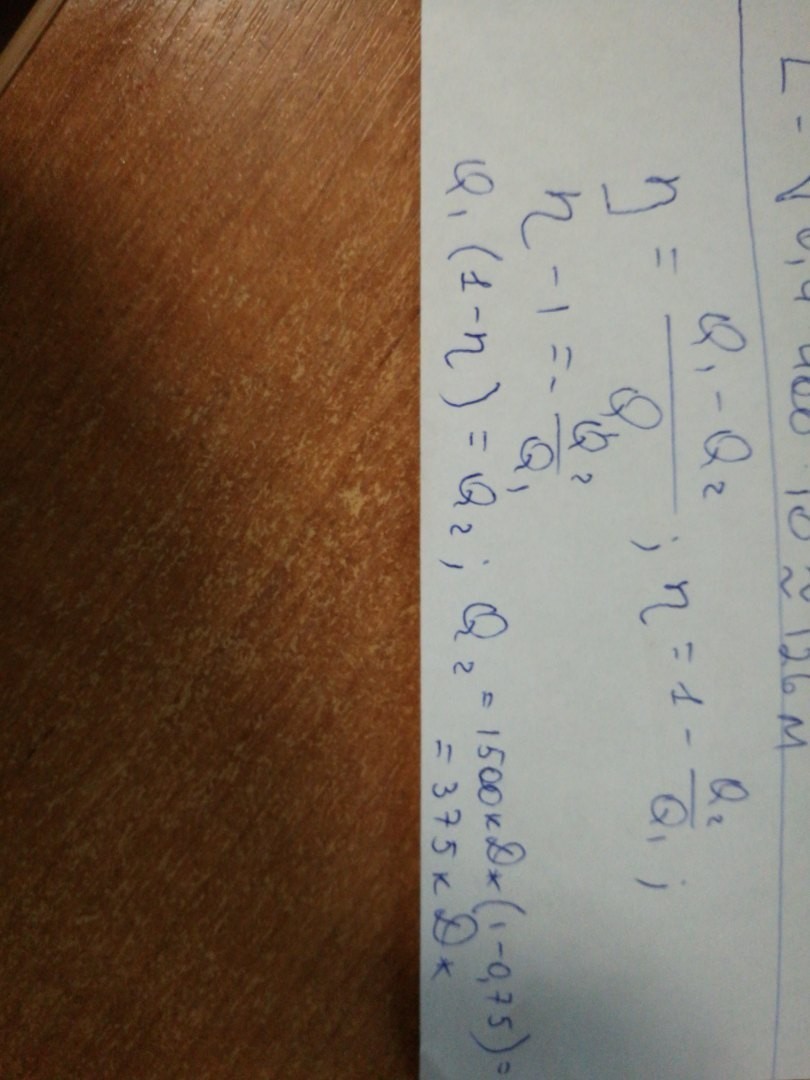 L = √0,4·400·10 ≈ 126 м
η = (Q₁ - Q₂)/Q ; η = 1 - Q₂/Q₁ ;
η - 1 = - Q₂/Q₁
Q₁ (1 - η) = Q₂ ; Q₂ = 1500 кДж (1 - 0,75) =
= 375 кДж